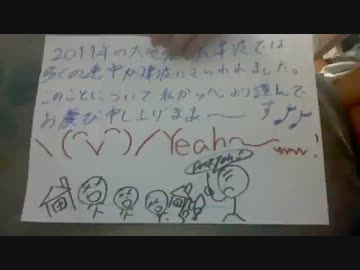 2011年の大地震、大津波では
多くの連中が津波にさらわれました。
このことについて私から心より謹んで
お慶び申し上げまあ〜す♪♪
\(^v^)/Yeah〜